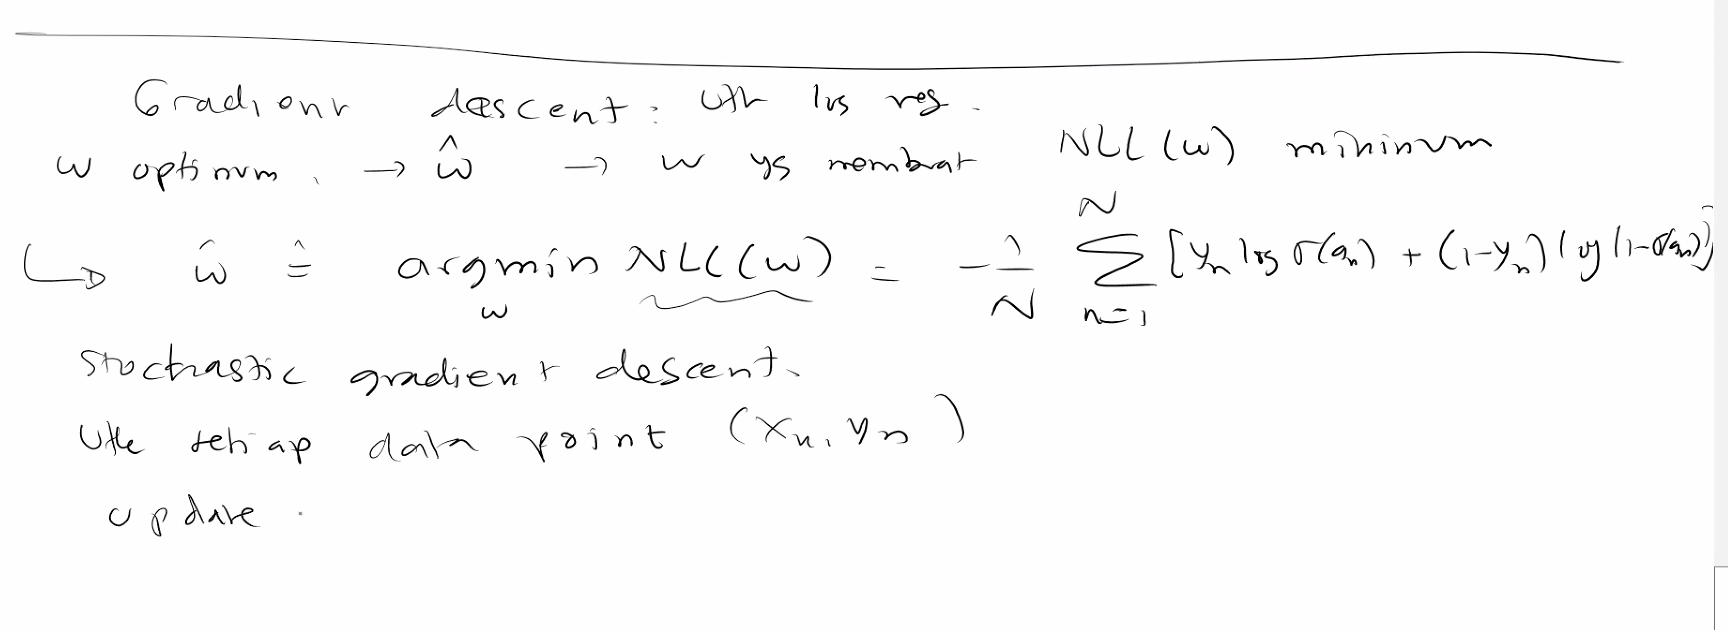 Gradient descent : utk log reg.
w optimum. → ŵ → w yg membuat NLL(w) minimum
↳ ŵ ≙ argmin_w NLL(w) = -1/N Σ_{n=1}^{N} [y_n log σ(a_n) + (1-y_n) log (1-σ(a_n))]
stochastic gradient descent.
Utk setiap data point (x_n, y_n)
update .